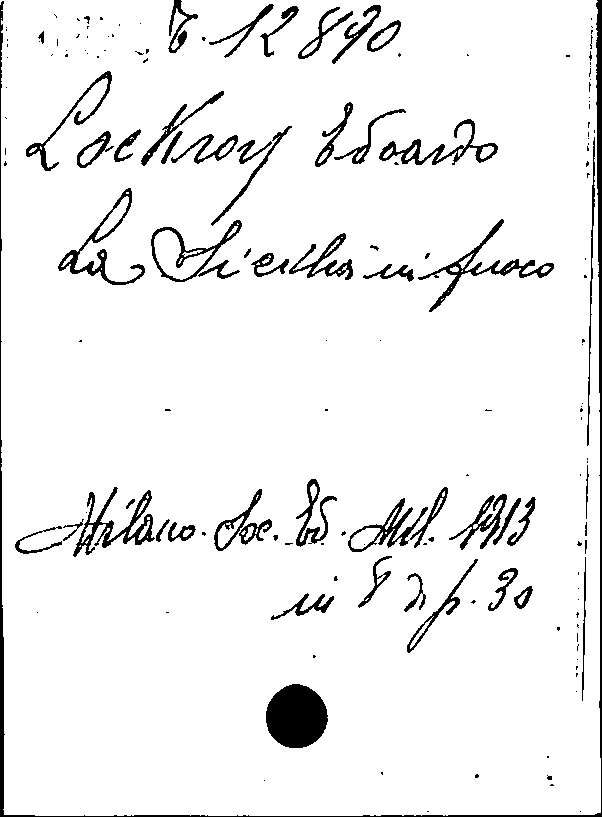 T. 12890.
Lockroy Edoardo
La Sicilia in fuoco
Milano. Soc. Ed. Mil. 1913
in 8 di p. 30